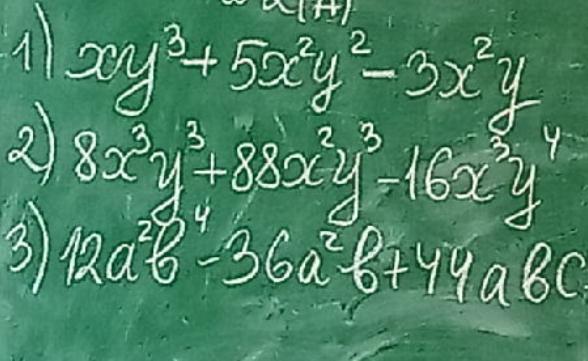 1) xy³ + 5x²y² - 3x²y
2) 8x³y³ + 88x²y³ - 16x³y⁴
3) 12a²b⁴ - 36a²b + 44abc